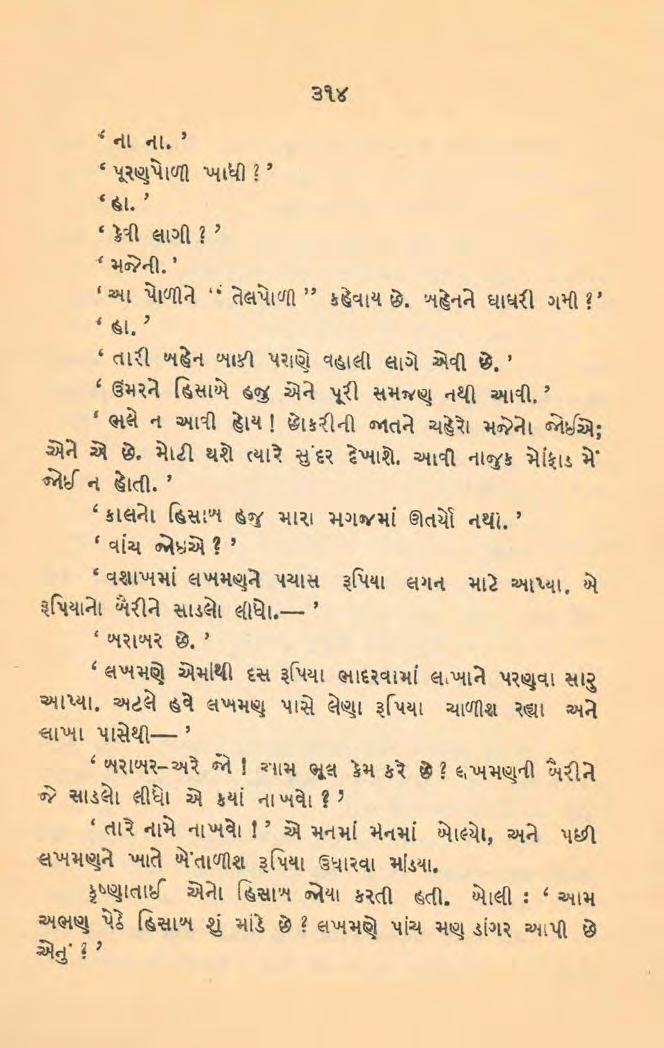 ૩૧૪
‘ ના ના. ’
‘ પૂરણપોળી ખાધી ? ’
‘ હા. ’
‘ કેવી લાગી ? ’
‘ મજેની. ’
‘ આ પોળીને “ તેલપોળી ” કહેવાય છે. બહેનને ઘાઘરી ગમી ? ’
‘ હા. ’
‘ તારી બહેન બાકી પરાણે વહાલી લાગે એવી છે. ’
‘ ઉંમરને હિસાબે હજુ એને પૂરી સમજણ નથી આવી. ’
‘ ભલે ન આવી હોય ! છોકરીની જાતને ચહેરો મજેનો જોઈએ;
એને એ છે. મોટી થશે ત્યારે સુંદર દેખાશે. આવી નાજુક મોંફાડ મેં
જોઈ ન હોતી. ’
‘ કાલનો હિસાબ હજુ મારા મગજમાં ઊતર્યો નથી. ’
‘ વાંચ જોઇએ ? ’
‘ વશાખમાં લખમણને પચાસ રૂપિયા લગન માટે આપ્યા. એ
રૂપિયાનો બૈરીને સાડલો લીધો.— ’
‘ બરાબર છે. ’
‘ લખમણે એમાંથી દસ રૂપિયા ભાદરવામાં લાખાને પરણવા સારુ
આપ્યા. અટલે હવે લખમણ પાસે લેણા રૂપિયા ચાળીશ રહ્યા અને
લાખા પાસેથી— ’
‘ બરાબર–અરે જો ! આમ ભૂલ કેમ કરે છે ? લખમણની બૈરીને
જે સાડલો લીધો એ કયાં નાખવો ? ’
‘ તારે નામે નાખવો ! ’ એ મનમાં મનમાં બોલ્યો, અને પછી
લખમણને ખાતે બેંતાળીશ રૂપિયા ઉધારવા માંડયા.
કૃષ્ણાતાઈ એનો હિસાબ જોયા કરતી હતી. બોલી : ‘ આમ
અભણ પેઠે હિસાબ શું માંડે છે ? લખમણે પાંચ મણ ડાંગર આપી છે
એનું ? ’